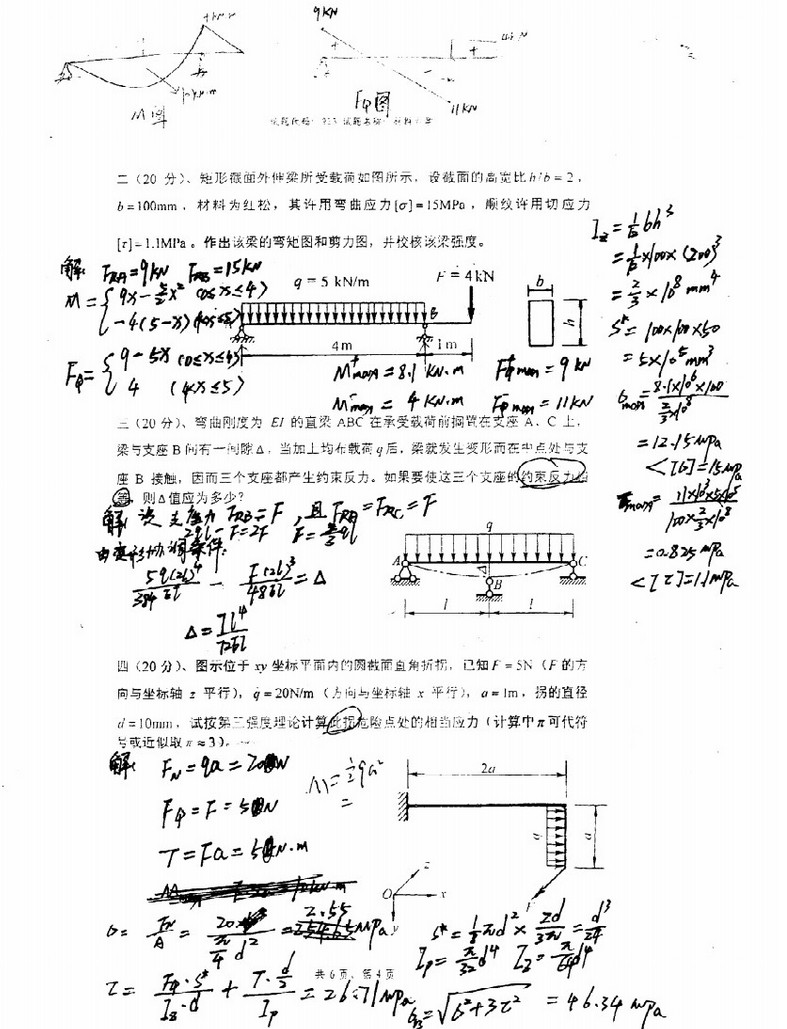 9KN
M图
FQ图
11KN
二（20 分）、矩形截面外伸梁所受载荷如图所示，设截面的高宽比 h/b = 2，
b=100mm，材料为红松，其许用弯曲应力[σ]=15MPa，顺纹许用切应力
[τ]=1.1MPa。作出该梁的弯矩图和剪力图，并校核该梁强度。
解: FRA=9KN FRB=15KN
M={ 9x-5/2x² (0≤x≤4)
-4(5-x) (4≤x≤5)
FQ={ 9-5x (0≤x≤4)
4 (4<x≤5)
q = 5 kN/m
F = 4kN
B
4m
1m
b
h
M+max=8.1 KN.m F+Qmax=9 KN
M-max=4 KN.m F-Qmax=11KN
Iz=1/12bh³
=1/12×100×(200)³
=2/3×10⁸ mm⁴
S*=100×100×50
=5×10⁵mm³
σmax=8.1×10⁶×100/(2/3×10⁸)
=12.15MPa
<[σ]=15MPa
τmax=11×10³×5×10⁵/(100×2/3×10⁸)
=0.825MPa
<[τ]=1.1MPa
三（20 分）、弯曲刚度为 EI 的直梁 ABC 在承受载荷前搁置在支座 A、C 上，
梁与支座 B 间有一间隙Δ，当加上均布载荷q后，梁就发生变形而在中点处与支
座 B 接触，因而三个支座都产生约束反力。如果要使这三个支座的约束反力相
等，则Δ值应为多少？
解: 设支座力 FRB=F，且 FRA=FRC=F
2ql-F=2F F=2/3ql
由变形协调条件:
5q(2l)⁴/384EI - F(2l)³/48EI=Δ
Δ=7l⁴/72EI
q
A
Δ
B
C
l
l
四（20 分）、图示位于 xy 坐标平面内的圆截面直角折拐，已知F=5N（F的方
向与坐标轴 z 平行），q=20N/m（方向与坐标轴 x 平行），a=1m，拐的直径
d=10mm，试按第三强度理论计算此拐危险点处的相当应力（计算中π可代符
号或近似取π≈3）。
解: FN=qa=20N
M=1/2qa²
=
FQ=F=5N
T=Fa=5N.m
2a
q
a
F
O
x
y
z
σ=FN/A=20/(π/4d²)=2.55MPa
S*=1/8πd²×2d/3π=d³/24
IP=π/32d⁴ Iz=π/64d⁴
τ=FQ·S*/(Iz·d)+T·d/2/IP=26.71MPa
σr3=√σ²+3τ² =46.34MPa
共 6 页，第 4 页